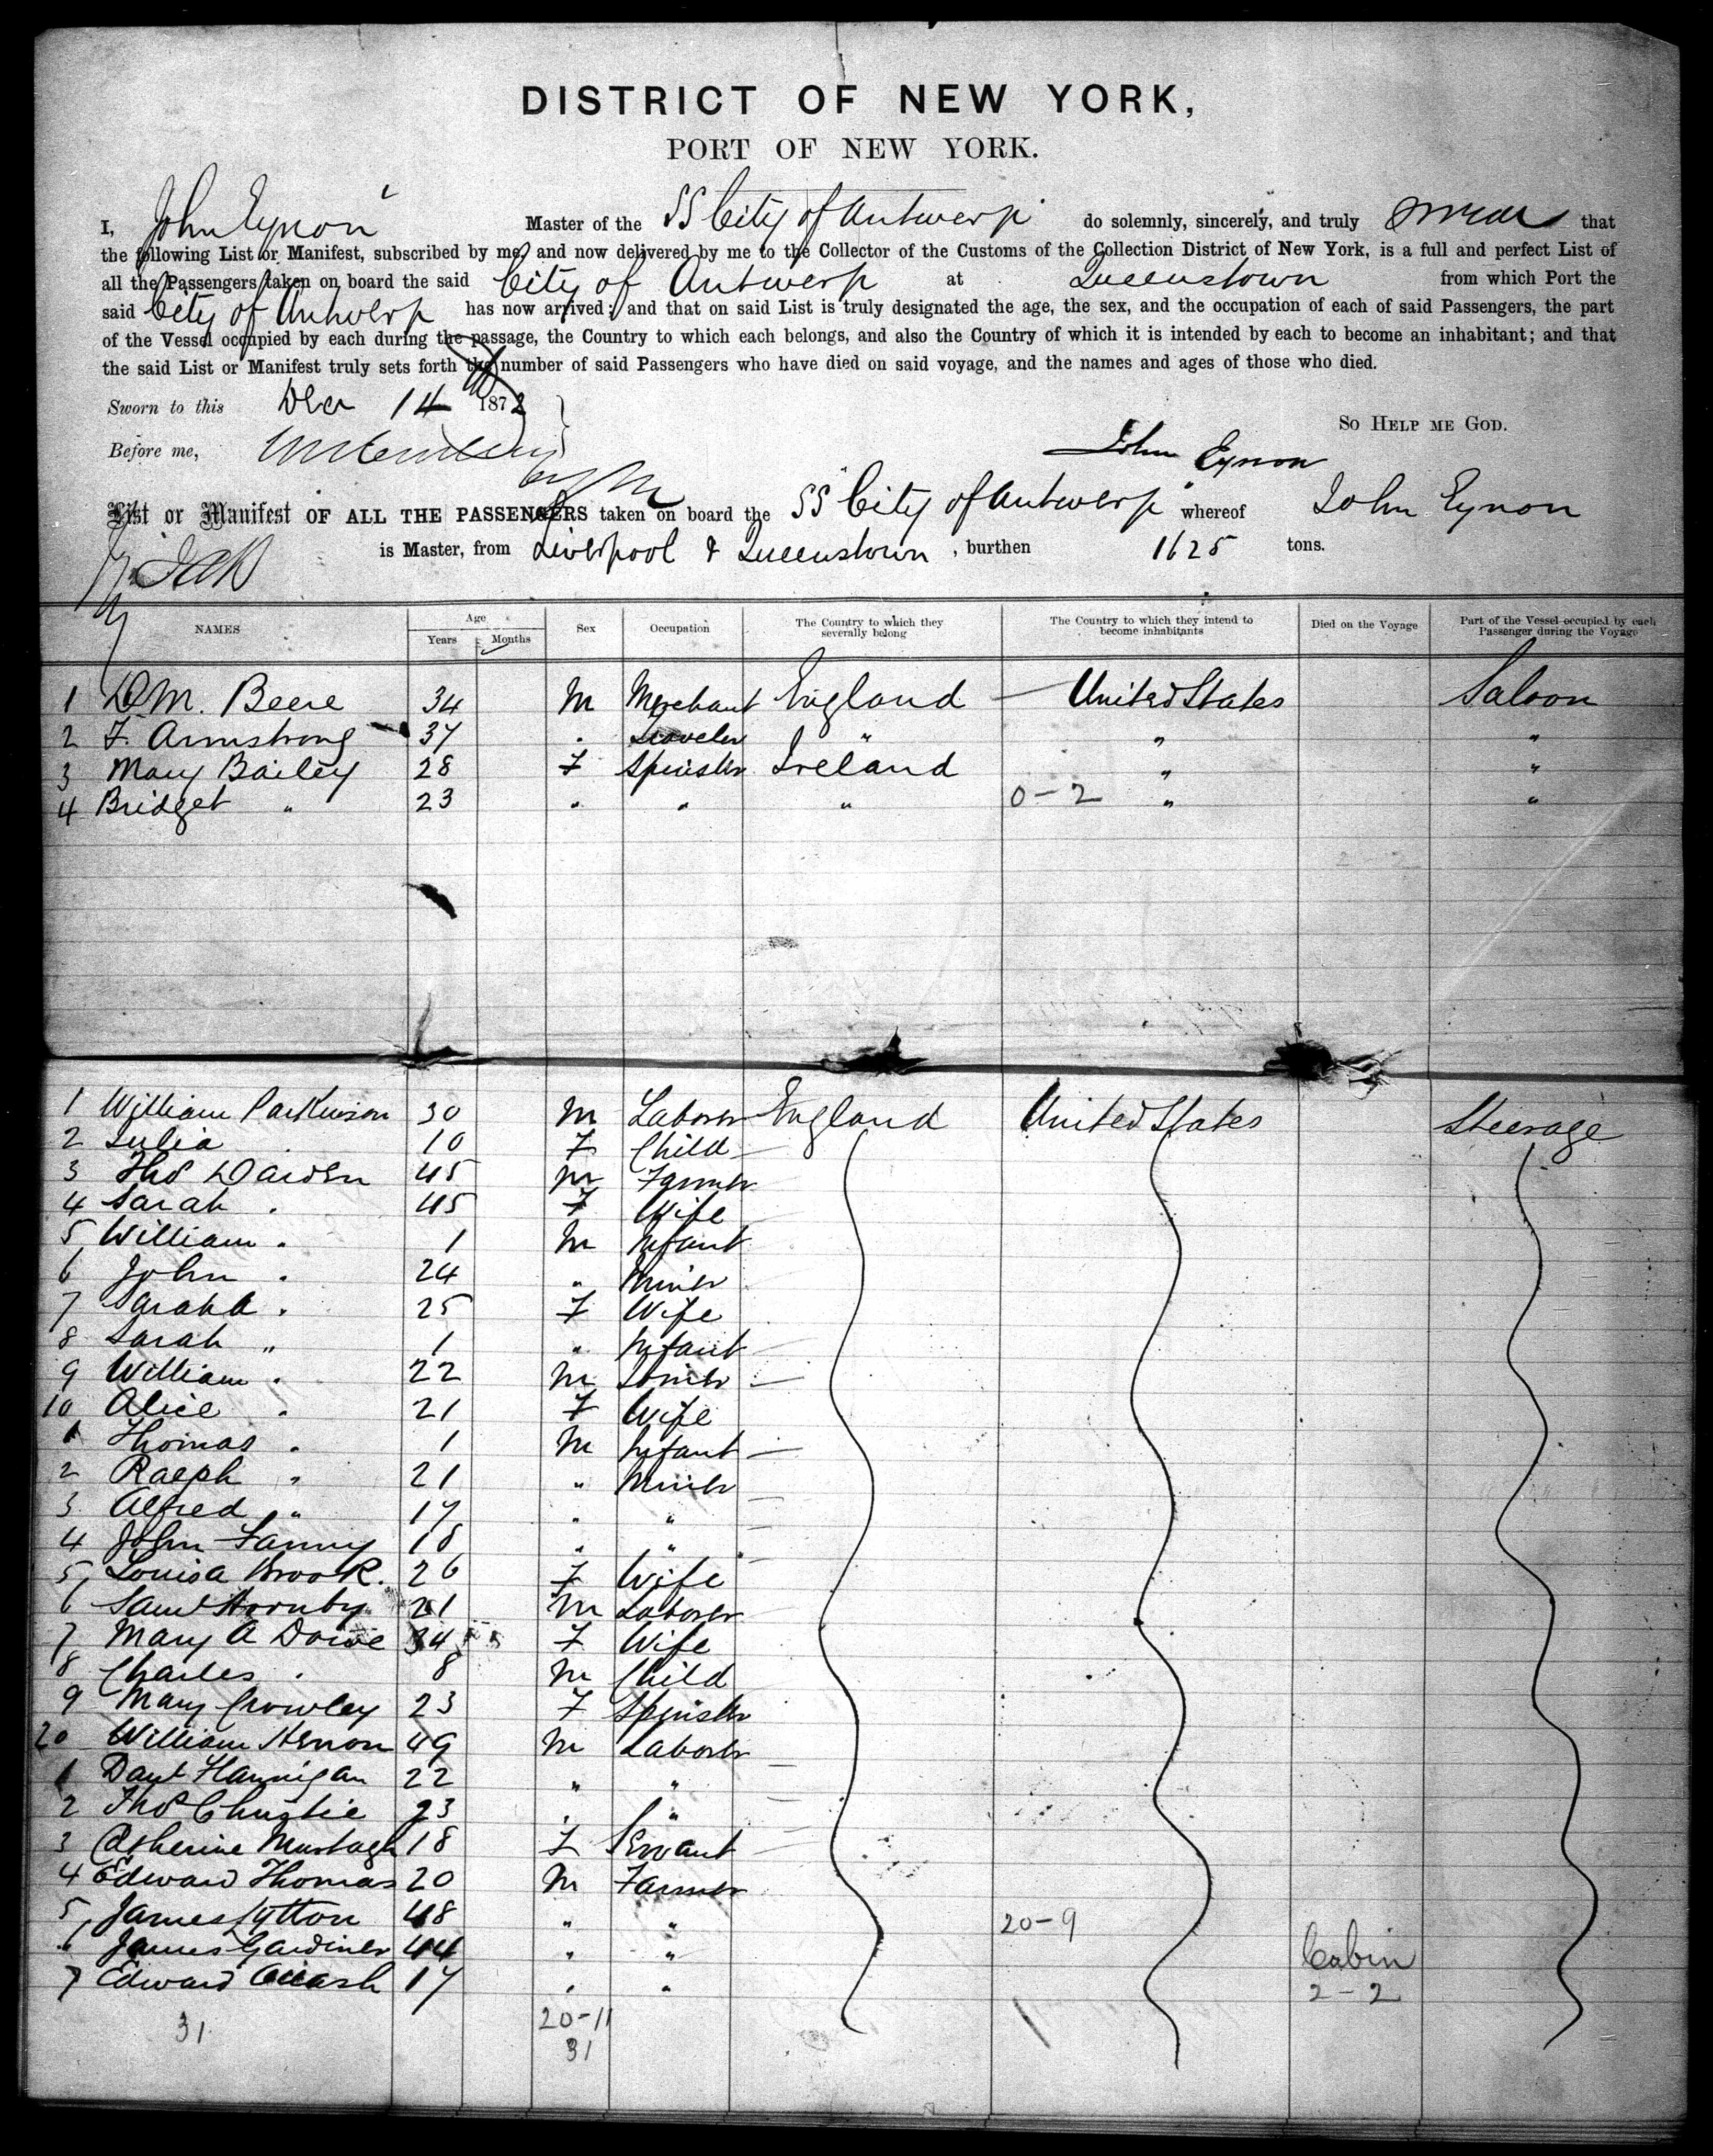 DISTRICT OF NEW YORK,
PORT OF NEW YORK.
I, John Eynon Master of the SS City of Antwerp do solemnly, sincerely, and truly swear that
the following List or Manifest, subscribed by me, and now delivered by me to the Collector of the Customs of the Collection District of New York, is a full and perfect List of
all the Passengers taken on board the said City of Antwerp at Queenstown from which Port the
said City of Antwerp has now arrived; and that on said List is truly designated the age, the sex, and the occupation of each of said Passengers, the part
of the Vessel occupied by each during the passage, the Country to which each belongs, and also the Country of which it is intended by each to become an inhabitant; and that
the said List or Manifest truly sets forth the number of said Passengers who have died on said voyage, and the names and ages of those who died.
Sworn to this Dec 14 1872
So Help me God.
Before me,
John Eynon
List or Manifest OF ALL THE PASSENGERS taken on board the SS City of Antwerp whereof John Eynon
is Master, from Liverpool & Queenstown, burthen 1625 tons.
NAMES Age Years Months Sex Occupation The Country to which they severally belong The Country to which they intend to become inhabitants Died on the Voyage Part of the Vessel occupied by each Passenger during the Voyage
1 D M. Beere 34 M Merchant England United States Saloon
2 F. Armstrong 37 " Traveler " " "
3 Mary Bailey 28 F Spinster Ireland " "
4 Bridget " 23 " " " 0-2 " "
1 William Parkinson 30 M Laborer England United States Steerage
2 Julia 10 F Child
3 Thos Darden 45 M Farmer
4 Sarah " 45 F Wife
5 William " 1 M Infant
6 John " 24 " Miner
7 Sarah A " 25 F Wife
8 Sarah " 1 " Infant
9 William " 22 M
10 Alice " 21 F Wife
1 Thomas " 1 M Infant
2 Ralph " 21 " Miner
3 Alfred " 17 " "
4 John Fanny 18 " "
5 Louisa Brook. 26 F Wife
6 Saml Hornby 21 M Laborer
7 Mary A Dowe 34 F Wife
8 Charles " 8 M Child
9 Mary Crowley 23 F Spinster
20 William Henon 49 M Laborer
1 Danl Hannigan 22 " "
2 Thos Christie 23 " "
3 Catherine Murtagh 18 F Servant
4 Edward Thomas 20 M Farmer
5 James Lytton 48 " " 20-9
6 James Gardiner 44 " " Cabin
7 Edward 17 " " 2-2
31 20-11
31